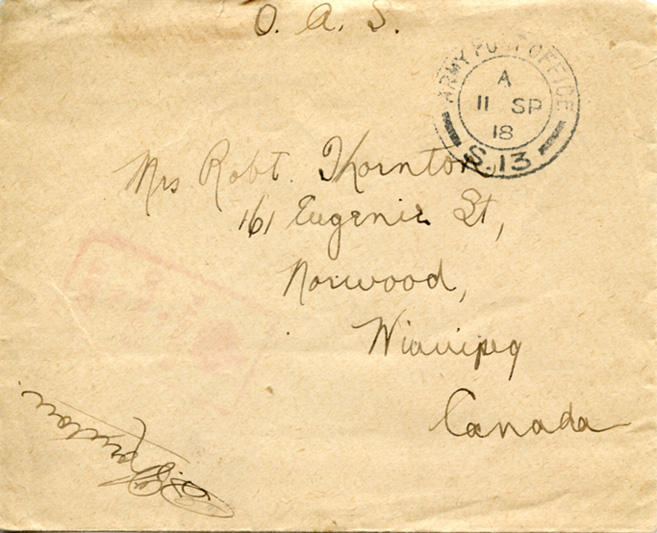 O. A. S.
ARMY POST OFFICE
A
11 SP
18
S. 13
Mrs Robt. Thornton,
161 Eugenie St,
Norwood,
Winnipeg
Canada
Thornton